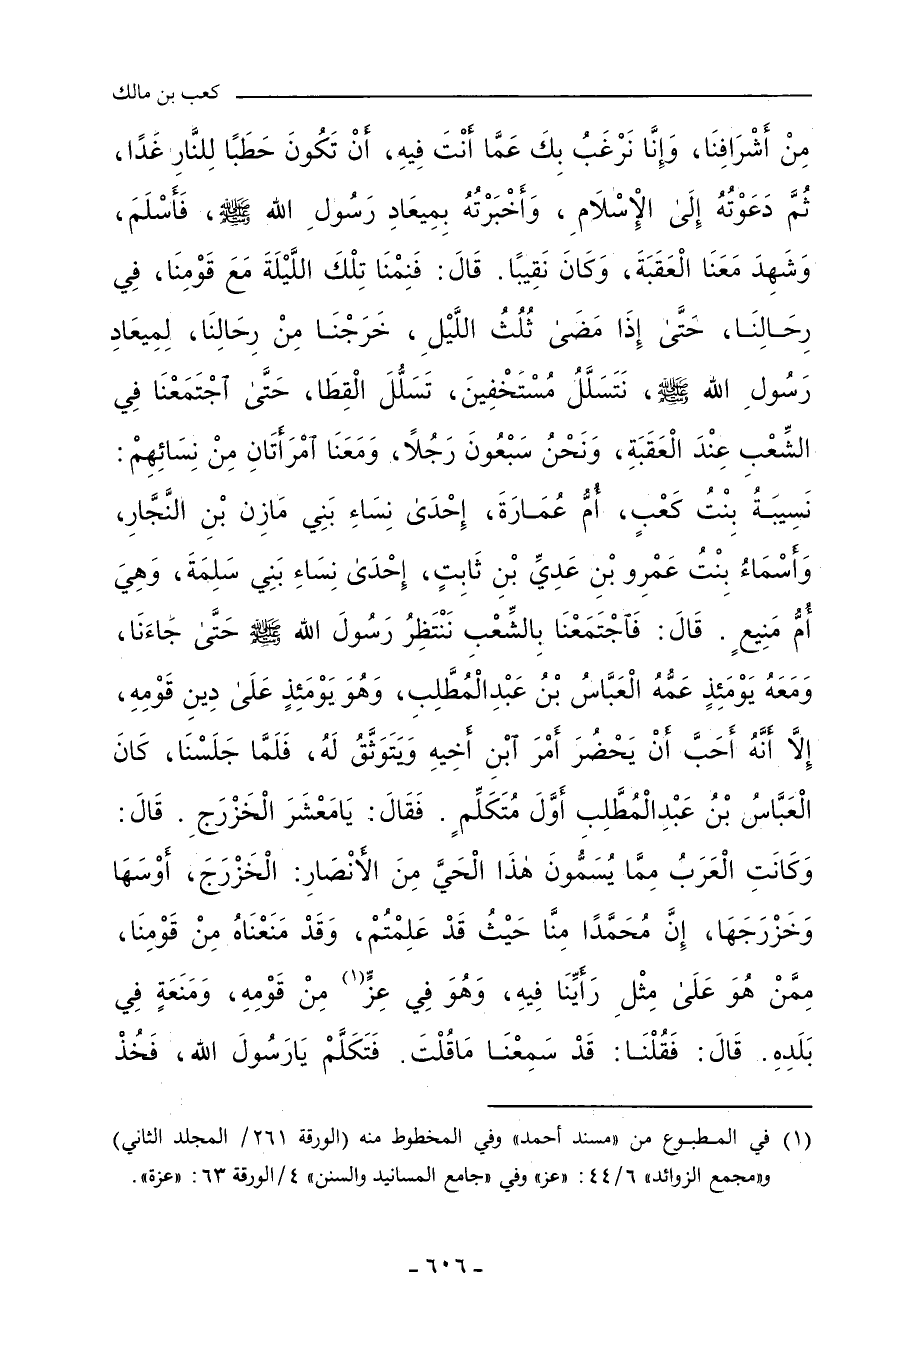 كعب بن مالك
مِنْ أَشْرَافِنَا، وَإِنَّا نَرْغَبُ بِكَ عَمَّا أَنْتَ فِيهِ، أَنْ تَكُونَ حَطَبًا لِلنَّارِ غَدًا،
ثُمَّ دَعَوْتُهُ إِلَىٰ الْإِسْلَامِ، وَأَخْبَرْتُهُ بِمِيعَادِ رَسُولِ الله ﷺ، فَأَسْلَمَ،
وَشَهِدَ مَعَنَا الْعَقَبَةَ، وَكَانَ نَقِيبًا. قَالَ: فَنِمْنَا تِلْكَ اللَّيْلَةَ مَعَ قَوْمِنَا، فِي
رِحَالِنَا، حَتَّىٰ إِذَا مَضَىٰ ثُلُثُ اللَّيْلِ، خَرَجْنَا مِنْ رِحَالِنَا، لِمِيعَادِ
رَسُولِ الله ﷺ، نَتَسَلَّلُ مُسْتَخْفِينَ، تَسَلُّلَ الْقِطَا، حَتَّىٰ ٱجْتَمَعْنَا فِي
الشِّعْبِ عِنْدَ الْعَقَبَةِ، وَنَحْنُ سَبْعُونَ رَجُلًا، وَمَعَنَا ٱمْرَأَتَانِ مِنْ نِسَائِهِمْ:
نَسِيبَةُ بِنْتُ كَعْبٍ، أُمُّ عُمَارَةَ، إِحْدَىٰ نِسَاءِ بَنِي مَازِنِ بْنِ النَّجَّارِ،
وَأَسْمَاءُ بِنْتُ عَمْرِو بْنِ عَدِيِّ بْنِ ثَابِتٍ، إِحْدَىٰ نِسَاءِ بَنِي سَلِمَةَ، وَهِيَ
أُمُّ مَنِيعٍ. قَالَ: فَٱجْتَمَعْنَا بِالشِّعْبِ نَنْتَظِرُ رَسُولَ الله ﷺ حَتَّىٰ جَاءَنَا،
وَمَعَهُ يَوْمَئِذٍ عَمُّهُ الْعَبَّاسُ بْنُ عَبْدِالْمُطَّلِبِ، وَهُوَ يَوْمَئِذٍ عَلَىٰ دِينِ قَوْمِهِ،
إِلَّا أَنَّهُ أَحَبَّ أَنْ يَحْضُرَ أَمْرَ ٱبْنِ أَخِيهِ وَيَتَوَثَّقُ لَهُ، فَلَمَّا جَلَسْنَا، كَانَ
الْعَبَّاسُ بْنُ عَبْدِالْمُطَّلِبِ أَوَّلَ مُتَكَلِّمٍ. فَقَالَ: يَامَعْشَرَ الْخَزْرَجِ. قَالَ:
وَكَانَتِ الْعَرَبُ مِمَّا يُسَمُّونَ هٰذَا الْحَيَّ مِنَ الْأَنْصَارِ: الْخَزْرَجَ، أَوْسَهَا
وَخَزْرَجَهَا، إِنَّ مُحَمَّدًا مِنَّا حَيْثُ قَدْ عَلِمْتُمْ، وَقَدْ مَنَعْنَاهُ مِنْ قَوْمِنَا،
مِمَّنْ هُوَ عَلَىٰ مِثْلِ رَأْيِنَا فِيهِ، وَهُوَ فِي عِزٍّ(١) مِنْ قَوْمِهِ، وَمَنَعَةٍ فِي
بَلَدِهِ. قَالَ: فَقُلْنَا: قَدْ سَمِعْنَا مَاقُلْتَ. فَتَكَلَّمْ يَارَسُولَ الله، فَخُذْ
(١) في المطبوع من «مسند أحمد» وفي المخطوط منه (الورقة ٢٦١/ المجلد الثاني)
و«مجمع الزوائد» ٤٤/٦: «عز» وفي «جامع المسانيد والسنن» ٤/الورقة ٦٣: «عزة».
- ٦٠٦ -